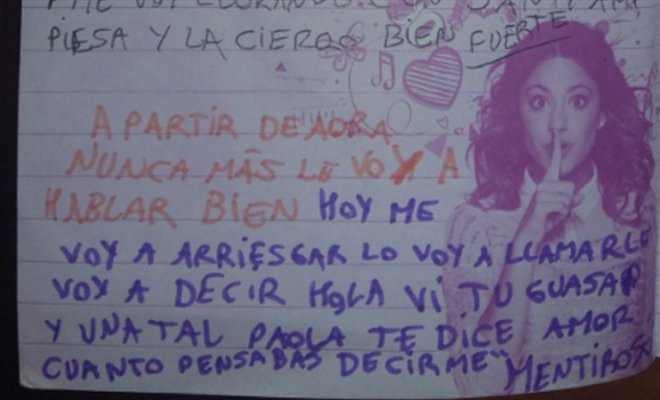 PIESA Y LA CIERRO BIEN FUERTE
A PARTIR DE AORA
NUNCA MÁS LE VOY A
HABLAR BIEN HOY ME
VOY A ARRIESGAR LO VOY A LLAMARLE
VOY A DECIR HOLA VI TU GUASAP
Y UNA TAL PAOLA TE DICE AMOR
CUANTO PENSABAS DECIRME" MENTIROSO